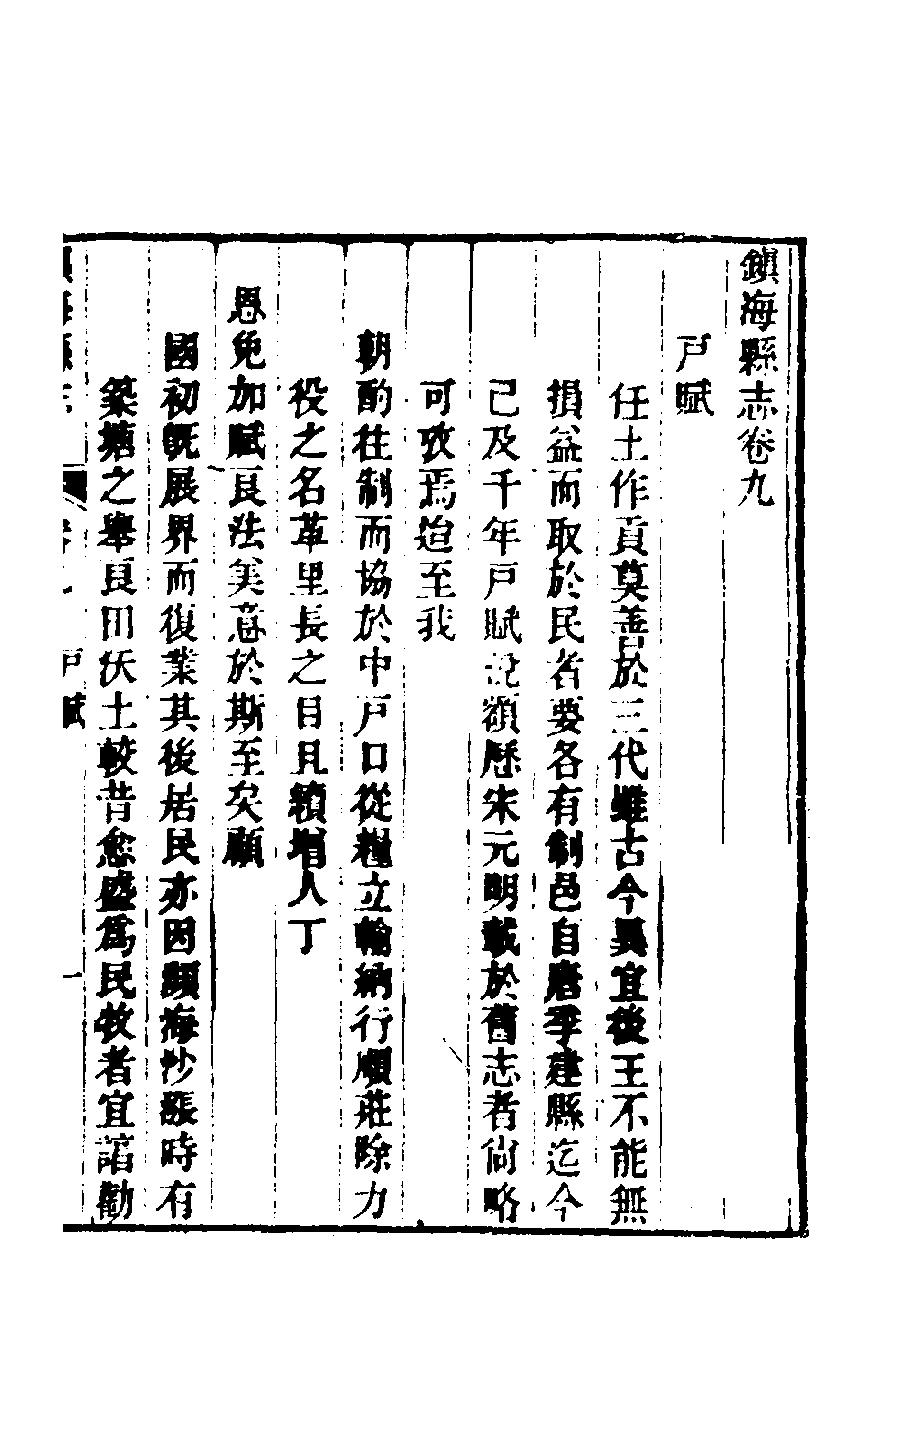 鎮海縣志卷九
戸賦
任土作貢莫善於三代雖古今異宜後王不能無
損益而取於民者要各有制邑自唐季建縣迄今
已及千年戸賦說額歷宋元明載於舊志者尙略
可攷焉迨至我
朝酌往制而協於中戸口從糧立輸納行順莊除力
役之名革里長之目且續增人丁
恩免加賦良法美意於斯至矣顧
國初旣展界而復業其後居民亦因瀕海沙漲時有
築塘之舉良田沃土較昔愈盛爲民牧者宜諮勸
鎮海縣志
卷九
戸賦
一